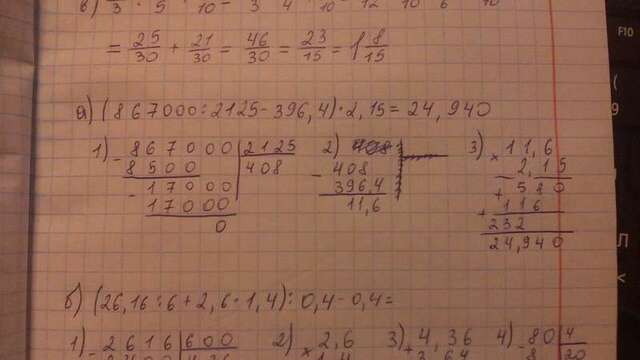 в) 3 · 5 10 = 3 4 10 = 12 10 6 10
= 25/30 + 21/30 = 46/30 = 23/15 = 1 8/15
а) (867000:2125-396,4)·2,15=24,940
1) - 867000 | 2125
8500 | 408
- 17000
17000
0
2) - 408
396,4
11,6
3) × 11,6
2,15
+ 580
+ 116
232
24,940
б) (26,16:6+2,6·1,4):0,4-0,4=
1) - 2616 | 600
2) × 2,6
3) + 4,36
4) - 80 | 4
F10
9
Л
<